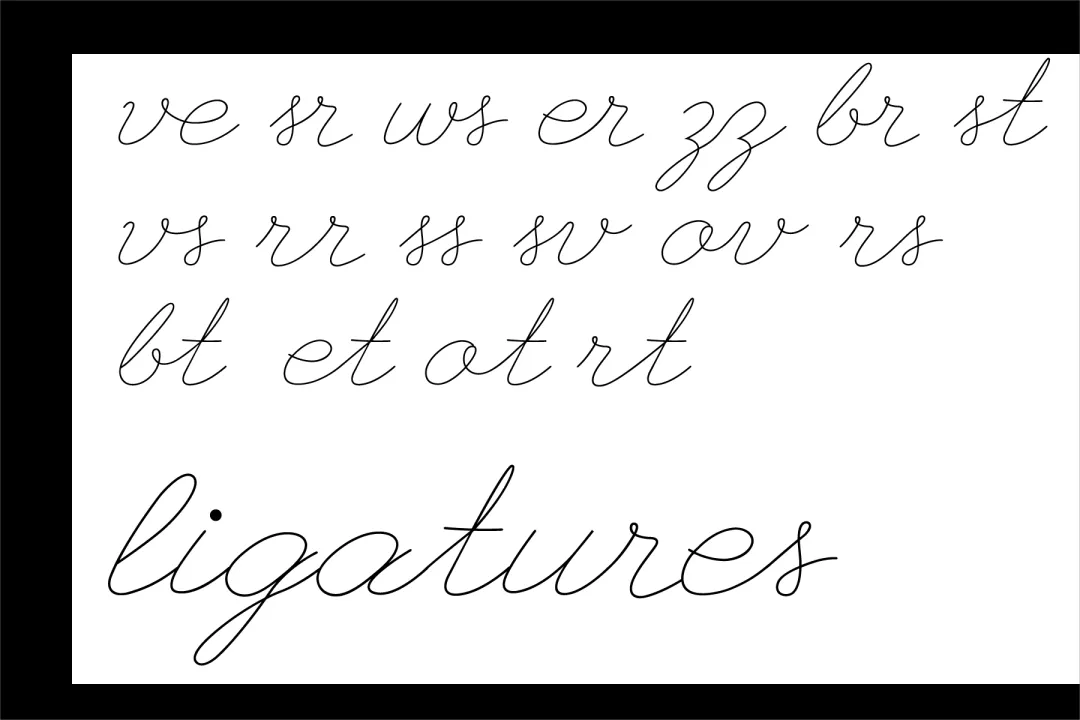 ve sr ws er zz br st
vs rr ss sv ov rs
bt et ot rt
ligatures